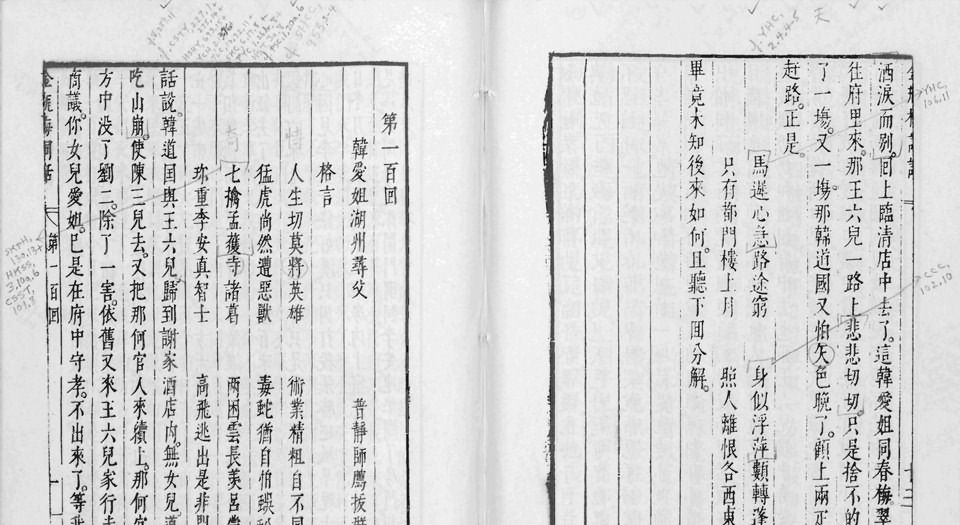 洒淚而别。回上臨清店中去了。這韓愛姐同春梅翠
往府里來。那王六兒一路上悲悲切切。只是捨不的
了一塲。又一塲。那韓道國又怕矢色晚了。顧上兩疋
赶路。正是。
馬遲心急路途窮 身似浮萍顛轉蓬
只有都門樓上月 照人離恨各西東
畢竟未知後來如何。且聽下回分解。
第一百回
韓愛姐湖州尋父 普静師薦拔群
格言
人生切莫將英雄 術業精粗自不同
猛虎尚然遭惡獸 毒蛇猶自怕蜈
七擒孟獲寺諸葛 兩困雲長羨呂蒙
珎重李安真智士 高飛逃出是非門
話說。韓道国與王六兒。歸到謝家酒店内。無女兒道
吃山崩。使陳三兒去。又把那何官人來續上。那何官
方中没了劉二。除了一害。依舊又來王六兒家行走
商議。你女兒愛姐。已是在府中守孝。不出來了。等我
金瓶梅詞話 第一百回
天
YHC, 2.4.4-5
YHC, 106.11
CCC, 102.10
恃